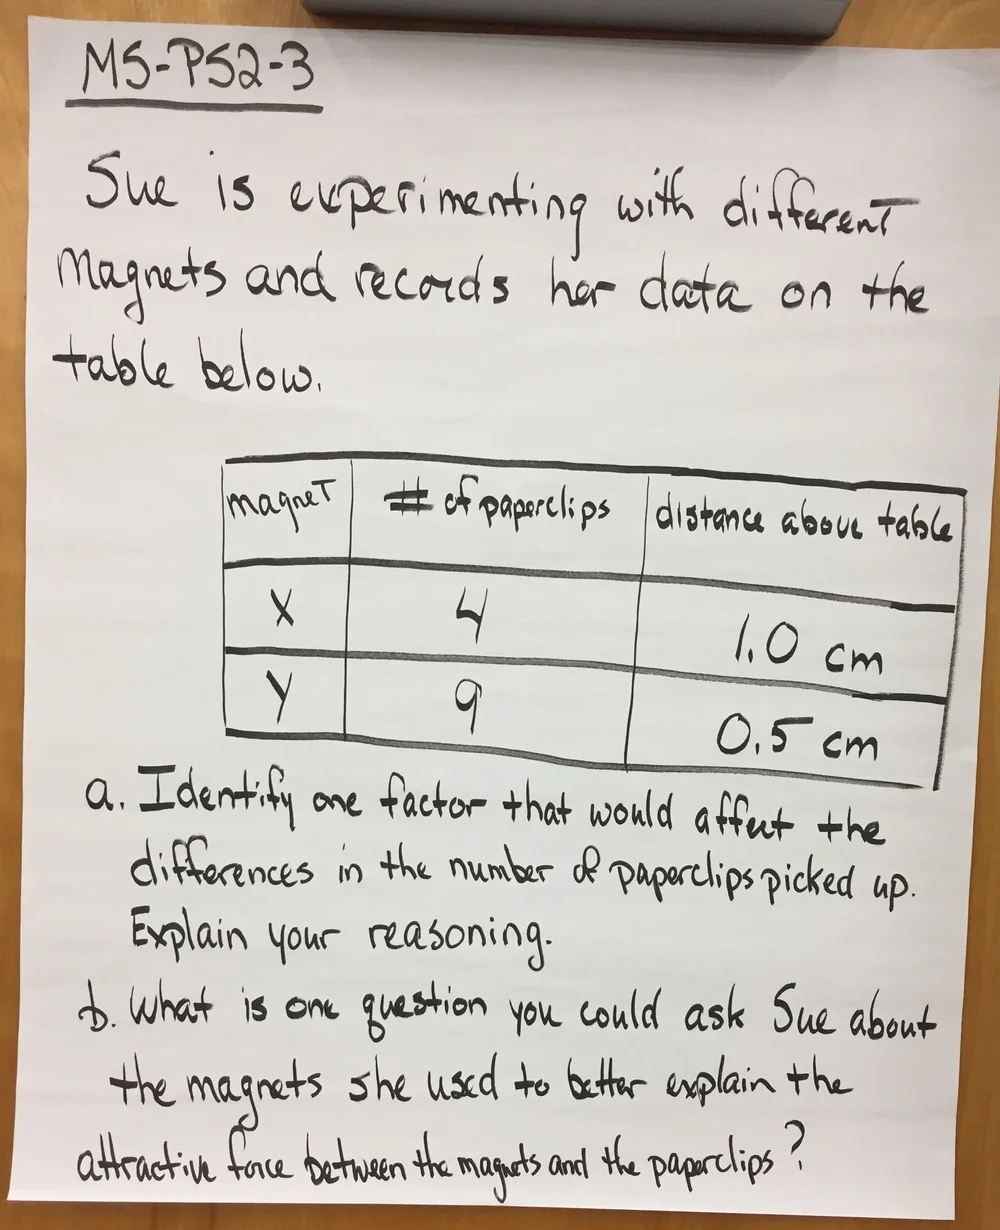 MS-PS2-3
Sue is experimenting with different
Magnets and records her data on the
table below.
magnet # of paperclips distance above table
X 4 1.0 cm
Y 9 0.5 cm
a. Identify one factor that would affect the
differences in the number of paperclips picked up.
Explain your reasoning.
b. What is one question you could ask Sue about
the magnets she used to better explain the
attractive force between the magnets and the paperclips?